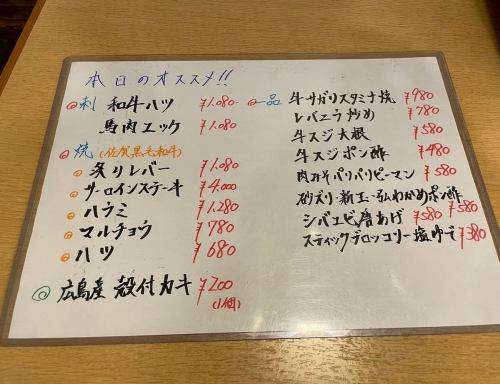 本日のオススメ!!
◎刺 和牛ハツ ¥1.080-
馬肉ユッケ ¥1.080-
◎焼 (佐賀黒毛和牛)
炙りレバー ¥1.080
サーロインステーキ ¥4.000
ハラミ ¥1.280
マルチョウ ¥780
ハツ ¥680
◎広島産 殻付カキ ¥200
(1個)
◎一品 牛サガリスタミナ焼 ¥980
レバニラ炒め ¥780
牛スジ大根 ¥580
牛スジポン酢 ¥480
肉みそパリパリピーマン ¥580
砂ズリ・新玉・わかめポン酢 ¥580
シバエビ唐あげ ¥580
スティックブロッコリー塩ゆで ¥380